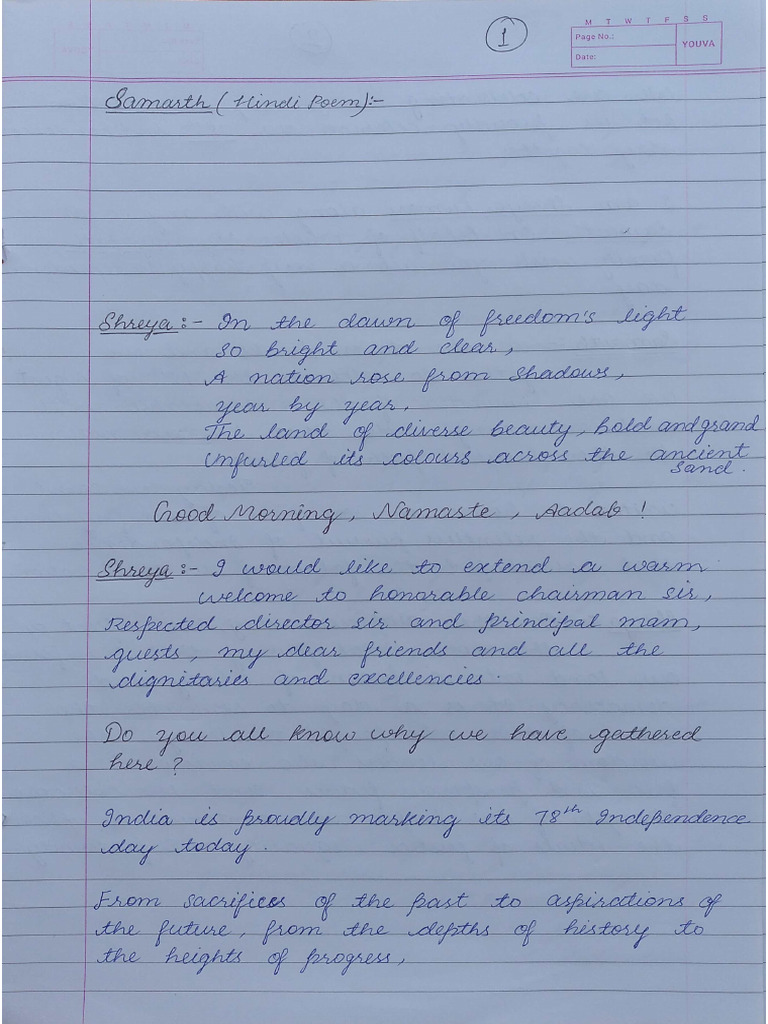 1
M T W T F S S
Page No.:
YOUVA
Date:
Samarth ( Hindi Poem):-
Shreya :- In the dawn of freedom's light
so bright and clear,
A nation rose from shadows,
year by year,
The land of diverse beauty, bold and grand
Unfurled its colours across the ancient
sand.
Good Morning, Namaste, Aadab !
Shreya :- I would like to extend a warm
welcome to honorable chairman sir,
Respected director sir and principal mam,
guests, my dear friends and all the
dignitaries and excellencies.
Do you all know why we have gathered
here ?
India is proudly marking its 78th Independence
day today.
From sacrifices of the past to aspirations of
the future, from the depths of history to
the heights of progress,